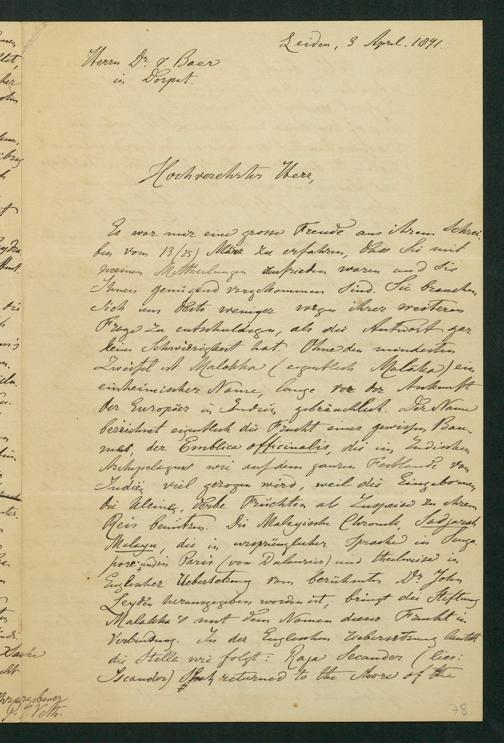 Leiden, 3 April. 1891.
Herrn Dr. v Baer
in Dorpat.
Hochverehrter Herr,
Es war mir eine grosse Freude aus ihrem Schrei-
ben vom 13 (25) März zu erfahren, dass Sie mit
meinen Mittheilungen zufrieden waren und sie
Ihnen genügend vorgekommen sind. Sie brauchen
sich um desto weniger wegen ihrer weiteren
Frage zu entschuldigen, als die Antwort gar
keine Schwierigkeit hat. Ohne den mindesten
Zweifel ist Malakka (eigentlich Malaka) ein
einheimischer Name, lange vor der Ankunft
der Europäer in Indien gebräuchlich. Der Name
bezeichnet eigentlich die Frucht eines gewissen Bau-
mes, der Emblica officinalis, die im Indischen
Archipelagus wie auf dem ganzen Festlande von
Indien viel gezogen wird, weil die Eingebornen
die kleine, Früchten als Zuspeise zu ihrem
Reis benützen. Die Malayische Chronik, Sadjarah
Malayu, die in ursprünglicher Sprache in Singa-
pore und in Paris (von Dulaurier) und theilweise in
Englischer Uebersetzung vom berühmten Dr. John
Leyden herausgegeben worden ist, bringt die Stiftung
Malakka's mit dem Namen dieser Frucht in
Verbindung. In der Englischen Uebersetzung lautet
die Stelle wie folgt: Raja Secander (lies:
Iscander) returned to the shore of the
78